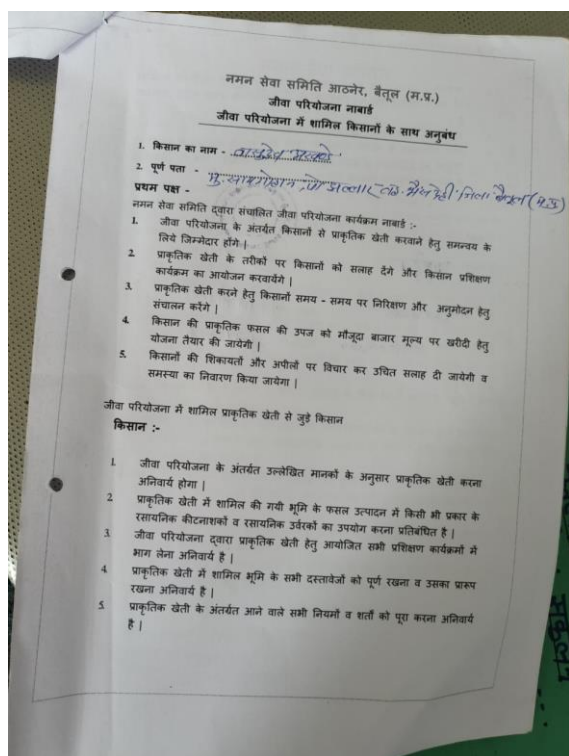 नमन सेवा समिति आठनेर, बैतूल (म.प्र.)
जीवा परियोजना नाबार्ड
जीवा परियोजना में शामिल किसानों के साथ अनुबंध
1. किसान का नाम -
2. पूर्ण पता - मु. पो. जिला बैतूल (म.प्र)
प्रथम पक्ष -
नमन सेवा समिति द्वारा संचालित जीवा परियोजना कार्यक्रम नाबार्ड :-
1. जीवा परियोजना के अंतर्गत किसानों से प्राकृतिक खेती करवाने हेतु समन्वय के
लिये जिम्मेदार होंगे |
2. प्राकृतिक खेती के तरीकों पर किसानों को सलाह देंगे और किसान प्रशिक्षण
कार्यक्रम का आयोजन करवायेंगे |
3. प्राकृतिक खेती करने हेतु किसानों समय - समय पर निरिक्षण और अनुमोदन हेतु
संचालन करेंगे |
4. किसान की प्राकृतिक फसल की उपज को मौजूदा बाजार मूल्य पर खरीदी हेतु
योजना तैयार की जायेगी |
5. किसानों की शिकायतों और अपीलों पर विचार कर उचित सलाह दी जायेगी व
समस्या का निवारण किया जायेगा |
जीवा परियोजना में शामिल प्राकृतिक खेती से जुड़े किसान
किसान :-
1. जीवा परियोजना के अंतर्गत उल्लेखित मानकों के अनुसार प्राकृतिक खेती करना
अनिवार्य होगा |
2 प्राकृतिक खेती में शामिल की गयी भूमि के फसल उत्पादन में किसी भी प्रकार के
रसायनिक कीटनाशकों व रसायनिक उर्वरकों का उपयोग करना प्रतिबंधित है |
3. जीवा परियोजना द्वारा प्राकृतिक खेती हेतु आयोजित सभी प्रशिक्षण कार्यक्रमों में
भाग लेना अनिवार्य है |
4 प्राकृतिक खेती में शामिल भूमि के सभी दस्तावेजों को पूर्ण रखना व उसका प्रारूप
रखना अनिवार्य है |
5. प्राकृतिक खेती के अंतर्गत आने वाले सभी नियमों व शर्तों को पूरा करना अनिवार्य
है |